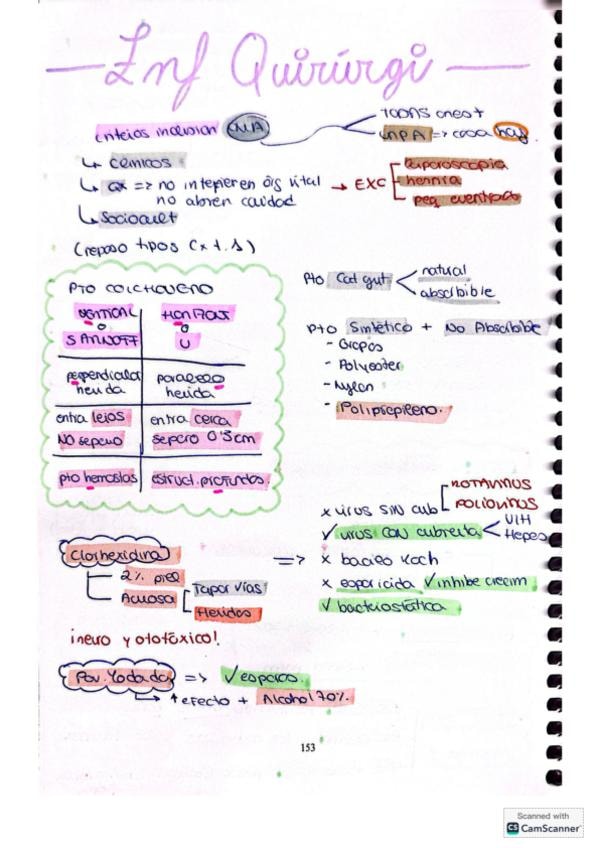 Enf Quirúrgi
TODAS anest
criterios inclusion CMA
UNPA => casa hoy
↳ Clínicos
↳ QX => no intepieren órg vital → EXC
no abren cavidad
laparoscopia
hernia
peq eventrac
↳ Sociocult
(repaso tipos Cx t.1)
PTO COLCHONERO
VERTICAL
o
SARNOFF
HORIZONT
o
U
perpendicular herida
paralelo herida
entra lejos
NO separo
entra cerca
separo 0'5cm
pto hemostas
estruct. profundos.
Pto Catgut
natural
absorbible
pto Sintético + No Absorbible
- Grapas
- Polyester
- Nylon
- Polipropileno.
Clorhexidina =>
2% piel
Acuosa
Tapar vías
Heridas
x virus SIN cub
ROTAVIRUS
POLIOVIRUS
✓ virus CON cubierta
VIH
Herpes
x bacilo Koch
x esporicida ✓ inhibe crecim
✓ bacteriostática
¡neuro y ototóxico!
Pov. Yodada => ✓ esporas.
↳ ↑ efecto + Alcohol 70%.
153
Scanned with
CS CamScanner